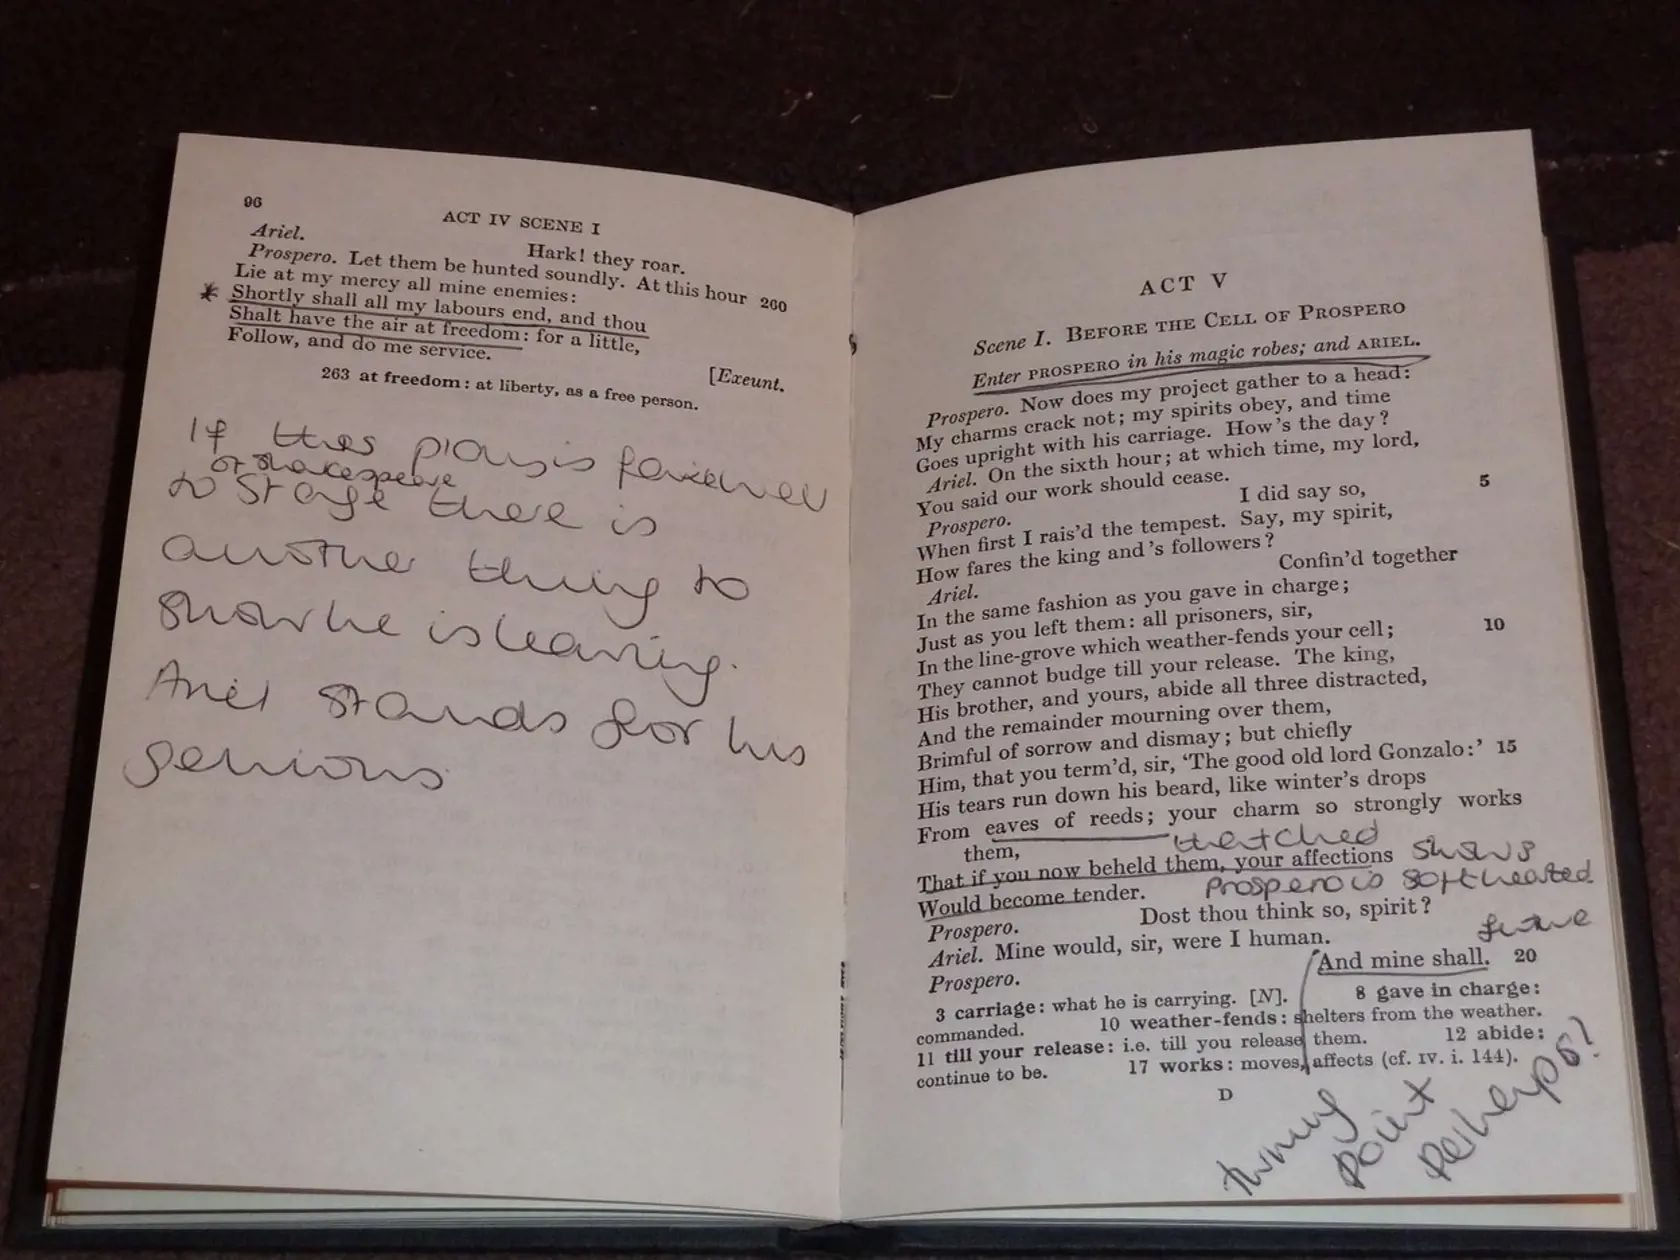 96
ACT IV SCENE I
Ariel.
Hark! they roar.
Prospero. Let them be hunted soundly. At this hour 260
Lie at my mercy all mine enemies:
* Shortly shall all my labours end, and thou
Shalt have the air at freedom: for a little,
Follow, and do me service.
[Exeunt.
263 at freedom: at liberty, as a free person.
If this play is farewell
of shakespeare
to stage there is
another thing to
show he is leaving.
Ariel stands for his
genious
ACT V
Scene I. BEFORE THE CELL OF PROSPERO
Enter PROSPERO in his magic robes; and ARIEL.
Prospero. Now does my project gather to a head:
My charms crack not; my spirits obey, and time
Goes upright with his carriage. How's the day?
Ariel. On the sixth hour; at which time, my lord,
You said our work should cease.
5
Prospero. I did say so,
When first I rais'd the tempest. Say, my spirit,
How fares the king and's followers?
Ariel. Confin'd together
In the same fashion as you gave in charge;
Just as you left them: all prisoners, sir,
In the line-grove which weather-fends your cell; 10
They cannot budge till your release. The king,
His brother, and yours, abide all three distracted,
And the remainder mourning over them,
Brimful of sorrow and dismay; but chiefly
Him, that you term'd, sir, 'The good old lord Gonzalo:' 15
His tears run down his beard, like winter's drops
From eaves of reeds; your charm so strongly works
them,
thatched
That if you now beheld them, your affections shows
Would become tender. Prospero is softhearted
Prospero. Dost thou think so, spirit?
Ariel. Mine would, sir, were I human.
future
Prospero. And mine shall. 20
3 carriage: what he is carrying. [N]. 8 gave in charge:
commanded. 10 weather-fends: shelters from the weather.
11 till your release: i.e. till you release them. 12 abide:
continue to be. 17 works: moves, affects (cf. IV. i. 144).
D
turning
point
perhaps?